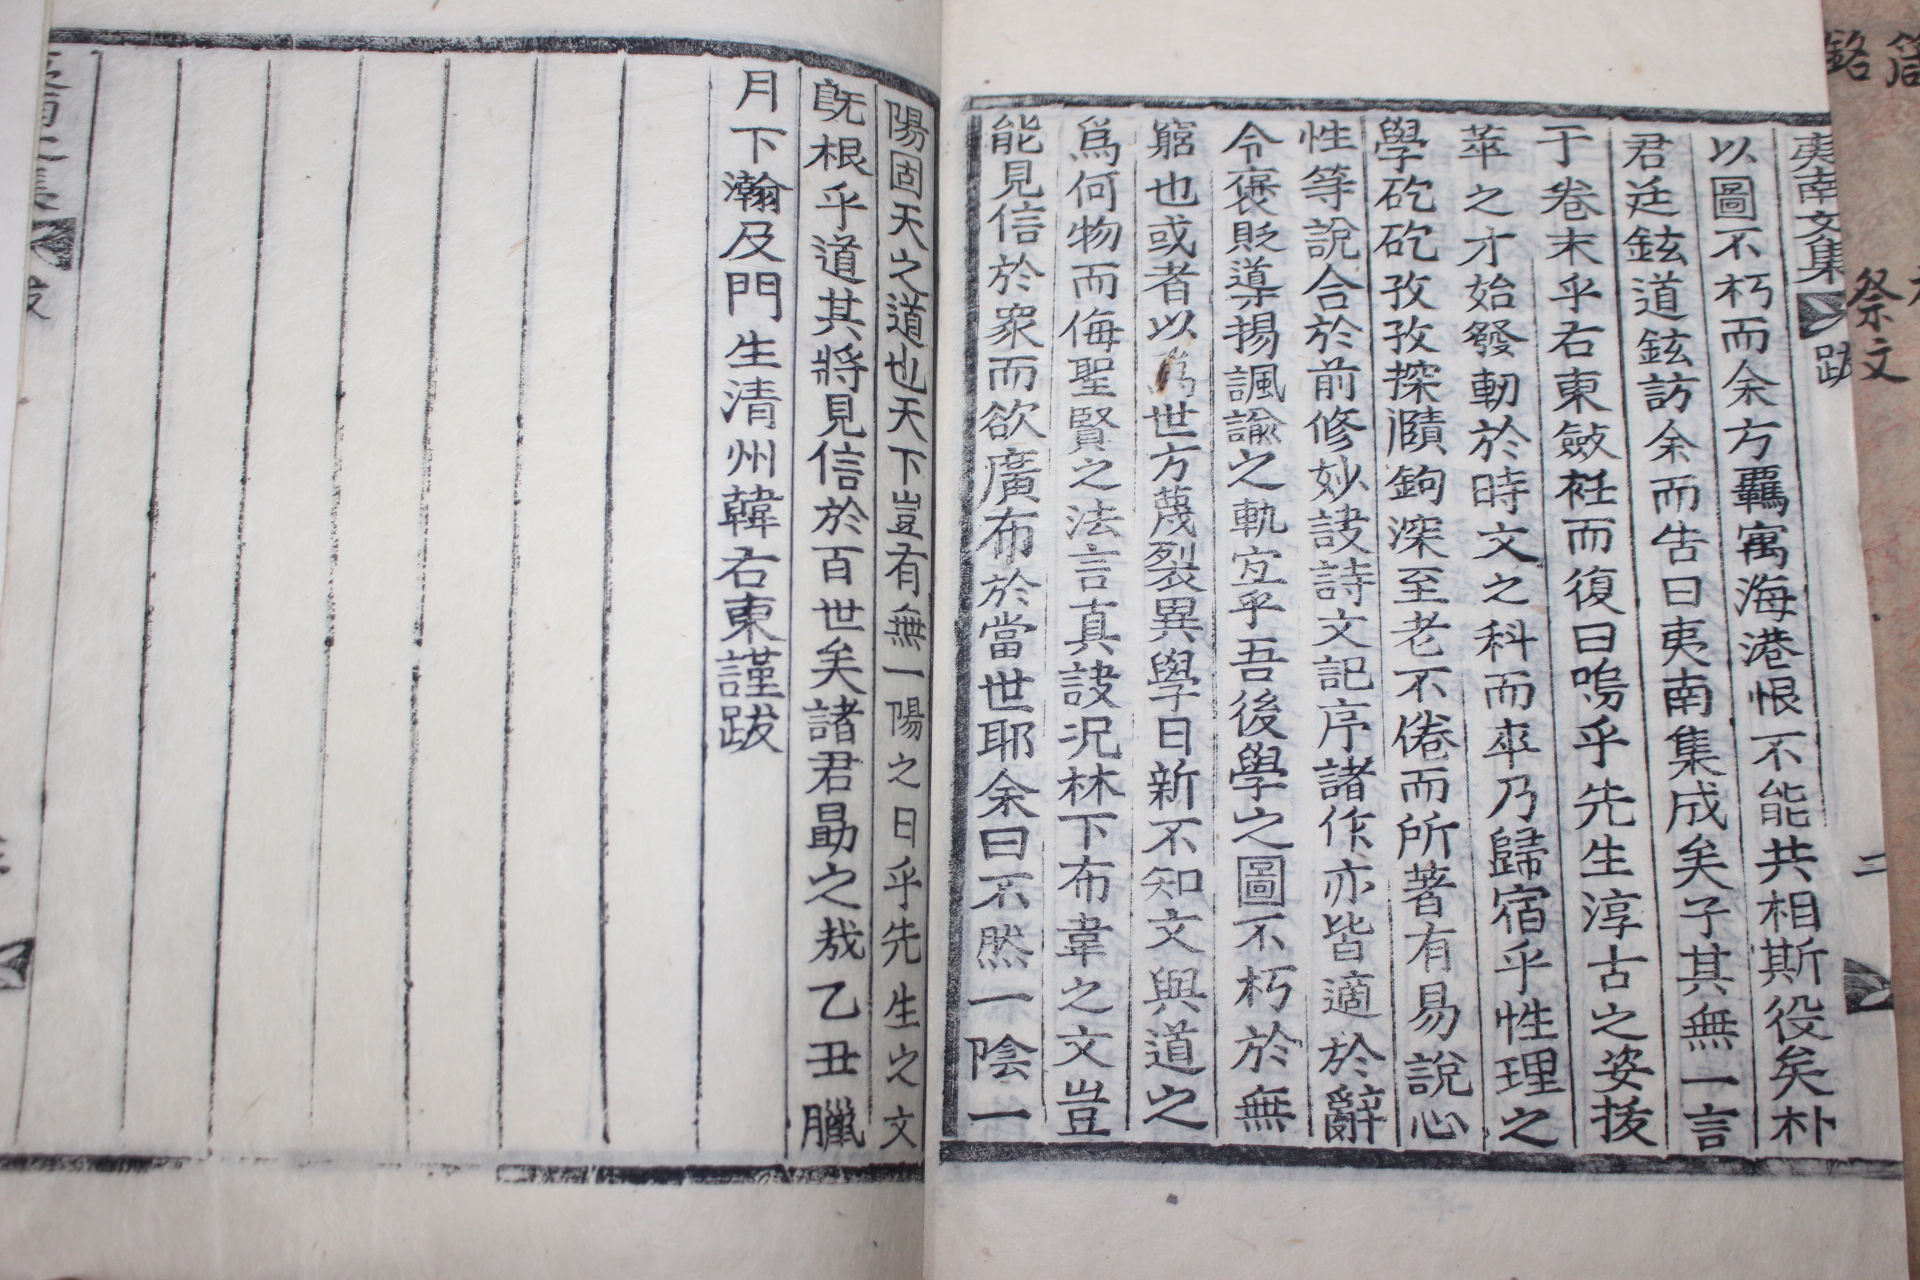 夷南文集 跋 二
以圖不朽而余方羈寓海港恨不能共相斯役矣朴
君廷鉉道鉉訪余而告曰夷南集成矣子其無一言
于卷末乎右東斂衽而復曰嗚乎先生淳古之姿拔
萃之才始發軔於時文之科而卒乃歸宿乎性理之
學矻矻孜孜探賾鉤深至老不倦而所著有易說心
性等說合於前修妙訣詩文記序諸作亦皆適於辭
令褒貶導揚諷諭之軌宜乎吾後學之圖不朽於無
窮也或者以爲世方蔑裂異學日新不知文與道之
爲何物而侮聖賢之法言真訣况林下布韋之文豈
能見信於衆而欲廣布於當世耶余曰不然一陰一
陽固天之道也天下豈有無一陽之日乎先生之文
旣根乎道其將見信於百世矣諸君勗之哉乙丑臘
月下瀚及門生清州韓右東謹跋
銘
祭文